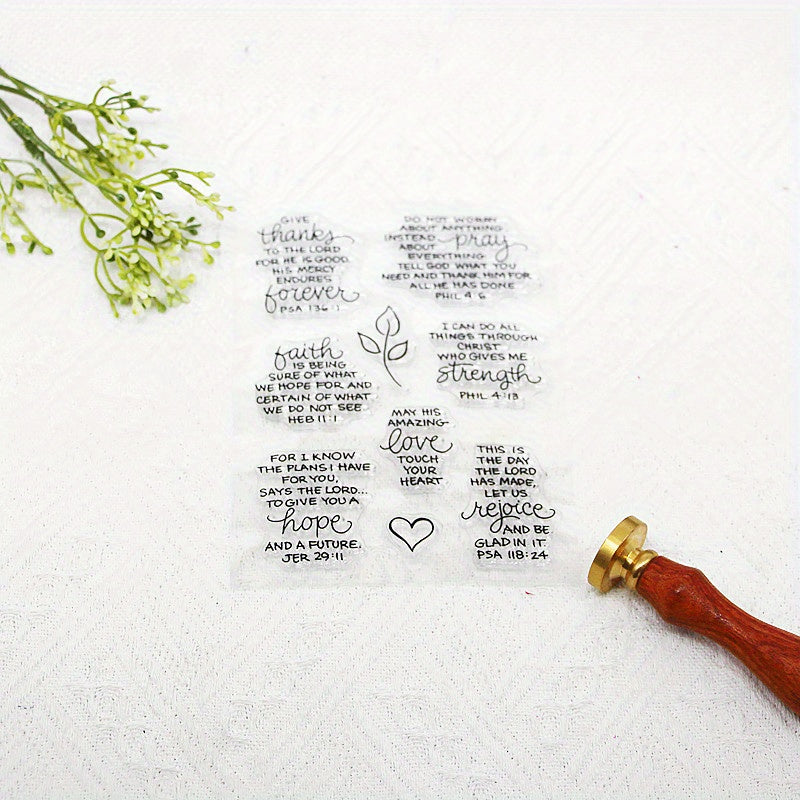 GIVE
thanks
TO THE LORD
FOR HE IS GOOD.
HIS MERCY
ENDURES
forever
PSA 136:1
DO NOT WORRY
ABOUT ANYTHING
INSTEAD pray
ABOUT
EVERYTHING
TELL GOD WHAT YOU
NEED AND THANK HIM FOR
ALL HE HAS DONE
PHIL 4:6
faith
IS BEING
SURE OF WHAT
WE HOPE FOR AND
CERTAIN OF WHAT
WE DO NOT SEE.
HEB 11:1
I CAN DO ALL
THINGS THROUGH
CHRIST
WHO GIVES ME
strength
PHIL 4:13
MAY HIS
AMAZING
love
TOUCH
YOUR
HEART
FOR I KNOW
THE PLANS I HAVE
FOR YOU,
SAYS THE LORD...
TO GIVE YOU A
hope
AND A FUTURE.
JER 29:11
THIS IS
THE DAY
THE LORD
HAS MADE,
LET US
rejoice
AND BE
GLAD IN IT.
PSA 118:24